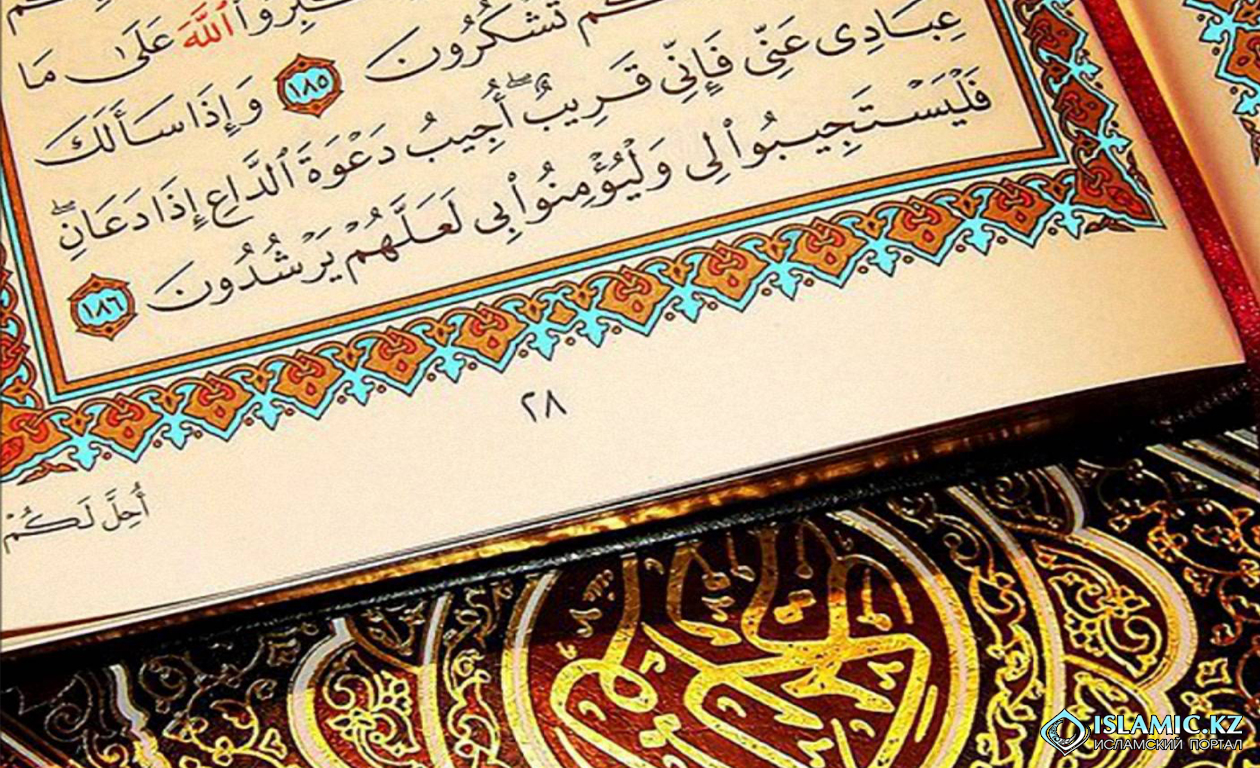 ٱللَّهَ عَلَىٰ مَا
تَشْكُرُونَ ١٨٥ وَإِذَا سَأَلَكَ
عِبَادِى عَنِّى فَإِنِّى قَرِيبٌ ۖ أُجِيبُ دَعْوَةَ ٱلدَّاعِ إِذَا دَعَانِ ۖ
فَلْيَسْتَجِيبُوا۟ لِى وَلْيُؤْمِنُوا۟ بِى لَعَلَّهُمْ يَرْشُدُونَ ١٨٦
٢٨
أُحِلَّ لَكُمْ
ISLAMIC.KZ
ИСЛАМСКИЙ ПОРТАЛ